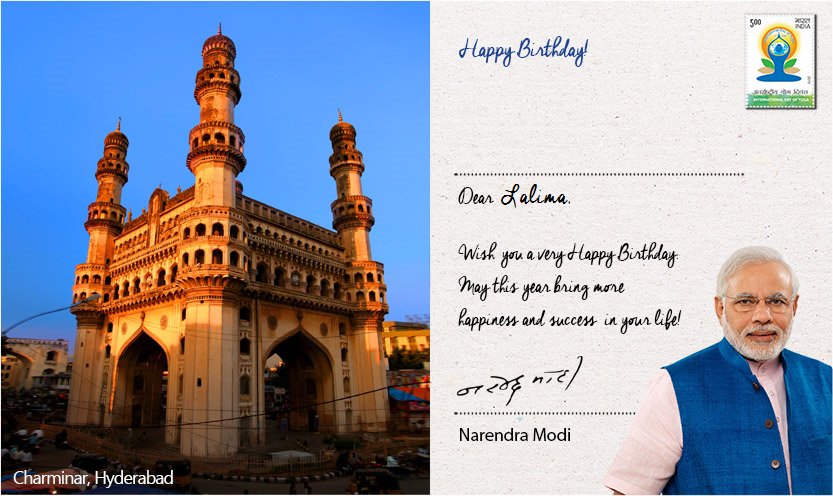 Happy Birthday!
5.00 भारत
INDIA
अंतर्राष्ट्रीय योग दिवस
INTERNATIONAL DAY OF YOGA
Dear Lalima,
Wish you a very Happy Birthday.
May this year bring more
happiness and success in your life!
नरेन्द्र मोदी
Narendra Modi
Charminar, Hyderabad